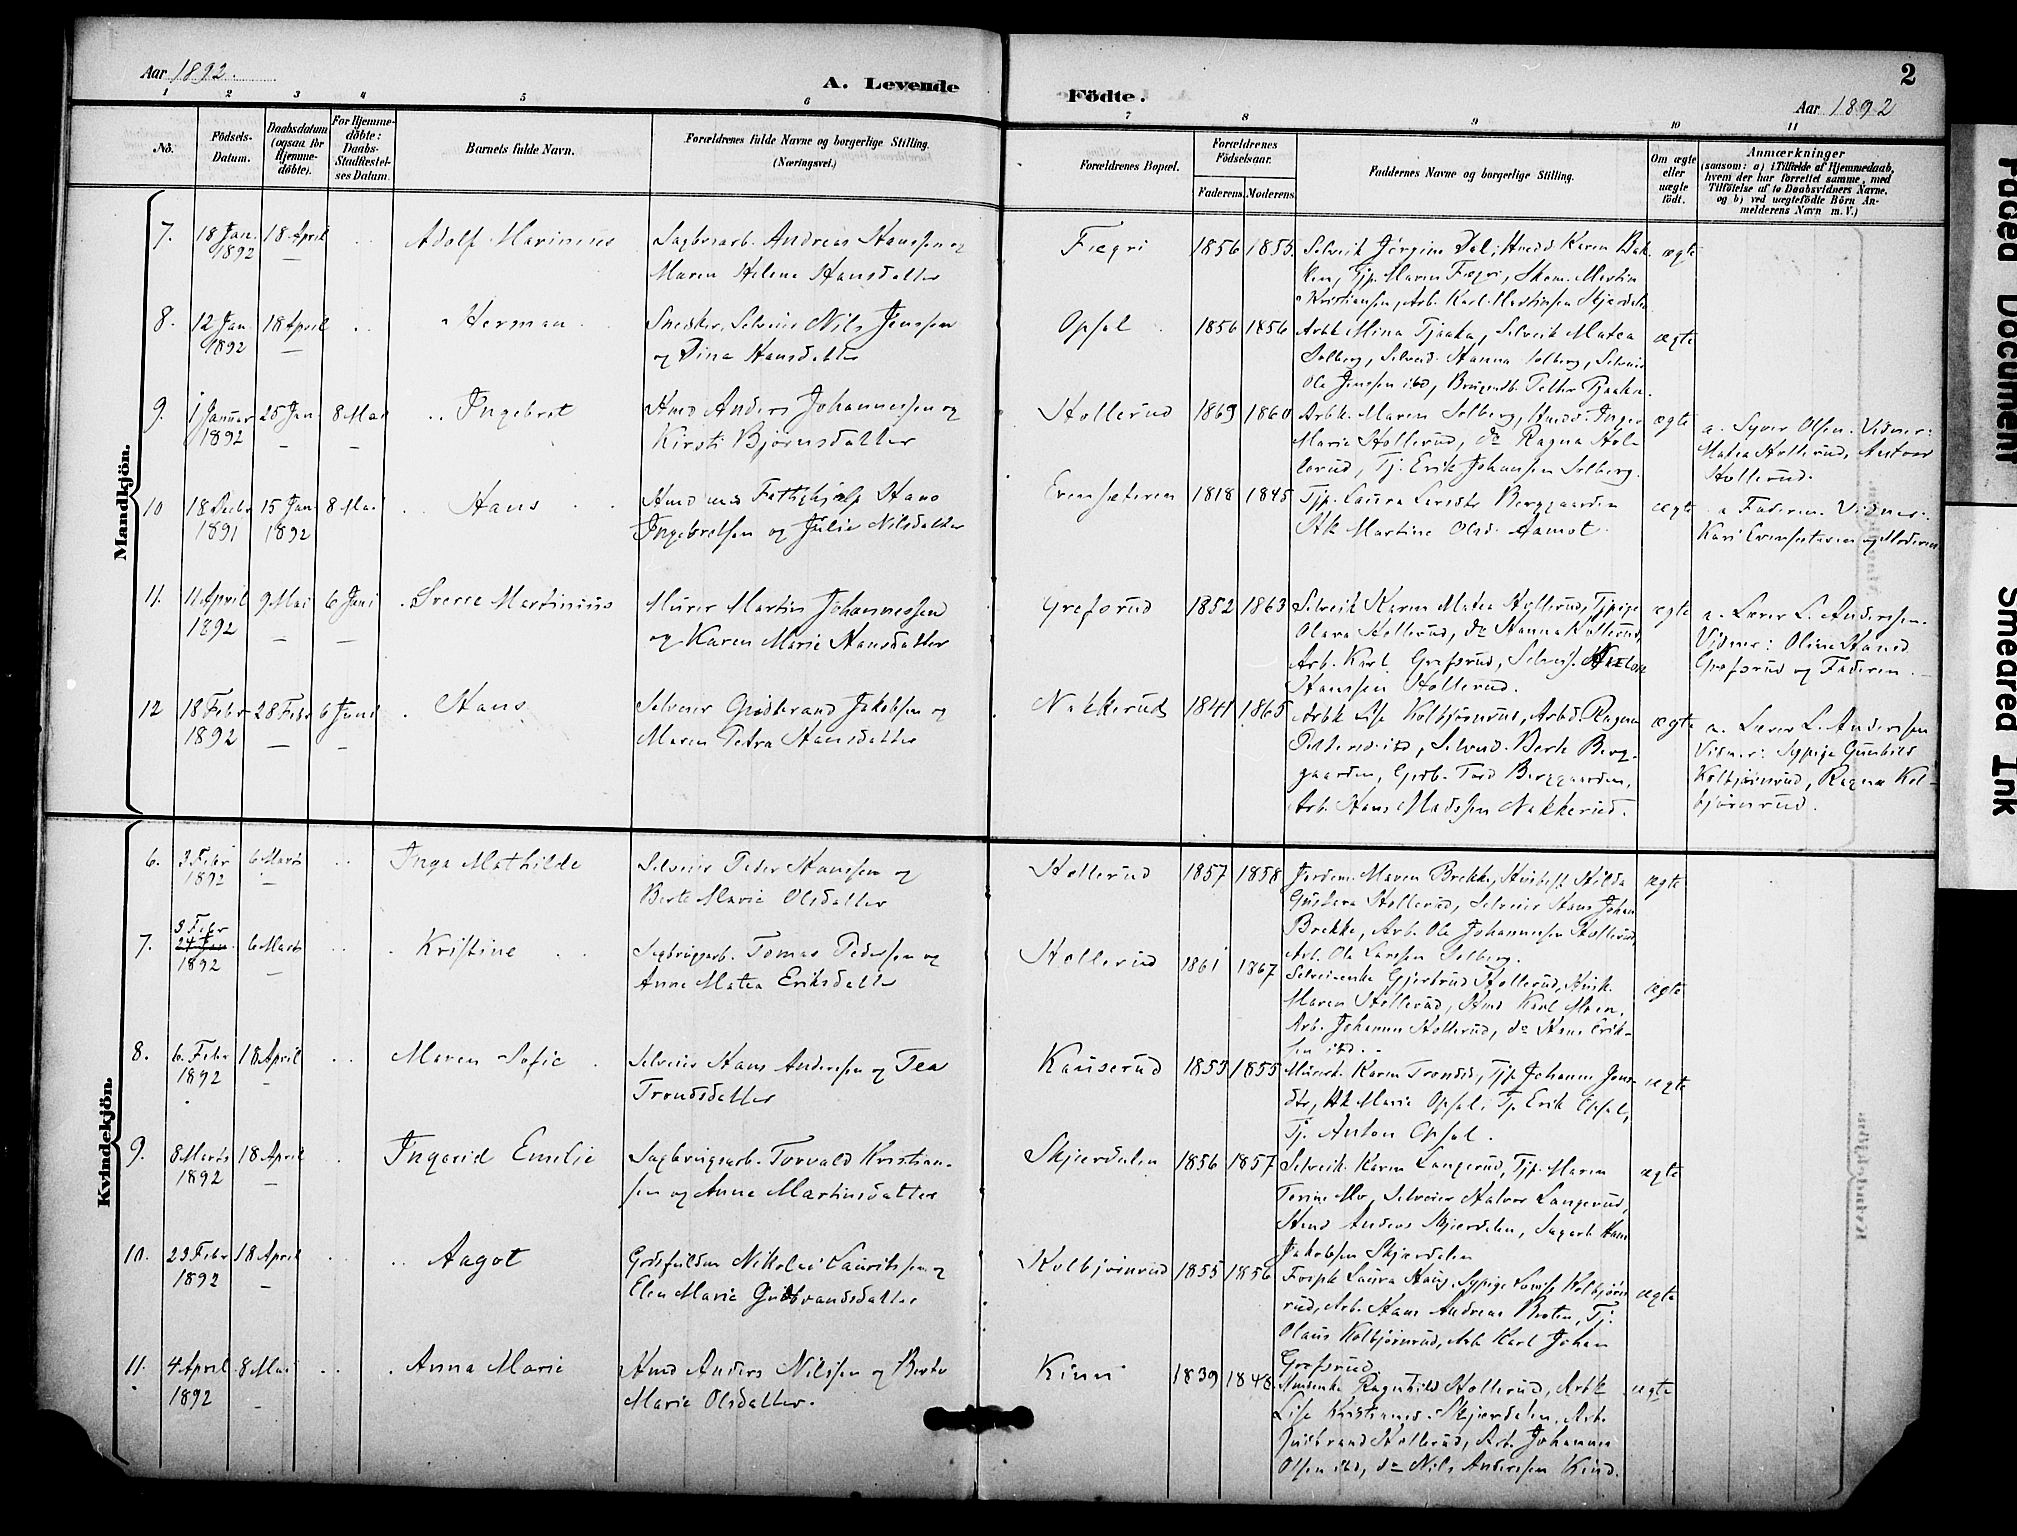 Aar 1892.
A. Levende Födte.
2
Aar 1892
1 2 3 4 5 6 7 8 9 10 11
No.
Födsels-
Datum.
Daabsdatum
(ogsaa for
Hjemme-
döbte).
For Hjemme-
döbte:
Daabs-
Stadfæstel-
ses Datum.
Barnets fulde Navn.
Forældrenes fulde Navne og borgerlige Stilling.
(Næringsvei.)
Forældrenes Bopæl.
Forældrenes
Födselsaar.
Faderens. Moderens.
Faddernes Navne og borgerlige Stilling.
Om ægte
eller
uægte
födt.
Anmærkninger
(saasom: a) i Tilfælde af Hjemmedaab,
hvem der har forrettet samme, med
Tilföielse af to Daabsvidners Navne,
og b) ved uægtefödte Börn An-
melderens Navn m. V.)
Mandkjön.
7. 18 Jan. 1892 18 April Adolf Marinius
Sagbrsarb. Andreas Hanssen og
Maren Helene Hansdatter
Fægri 1856 1855.
Selveik Jørgine Dal, Husds Karen Bak-
ken, Tjp. Maren Fægri, Skom. Martin
Kristiansen, Arb. Karl Martinsen Skjærdalen
ægte
8. 12 Jan. 1892 18 April Herman
Snedker, Selveier Nils Jenssen
og Dina Hansdatter
Opsal 1856 1856
Arbk Mina Tjaaka, Selveik Matea
Solberg, Selveid. Hanna Solberg, Selveier
Ole Jenssen ibd, Petter Tjaaka.
ægte
9. 1 Januar 1892 25 Jan 8 Mai Ingebret
Hmd Anders Johannessen og
Kirsti Bjørnsdatter
Hollerud 1869 1860
Arbk. Maren Solberg, Husds. Inger
Marie Hollerud, do Ragna Hol-
lerud, Tj. Erik Johansen Solberg.
ægte
a. Syver Olsen. Vidner:
Matea Hollerud,
Hollerud.
10 18 Decbr 1891 15 Jan 1892 8 Mai Hans
Hmd med Fattighjelp Hans
Ingebretsen og Julie Nilsdatter
Evensæteren 1818 1845
Tjp. Laura Berggaarden
Martine Olsd. Aamot.
ægte
a Faderen. Vidner:
Kari Evensæteren og Moderen
11. 11 April 1892 9 Mai 6 Juni Sverre Martinius
Murer Martin Johannessen
og Karen Marie Hansdatter
Grefsrud 1852 1863
Selveik Karen Matea Hollerud, Tjpige
Olava Hollerud, do Hanna Hollerud,
Arb. Karl Grefsrud, Selveis.
Hanssen Hollerud.
ægte
a. Lærer L. Anderssen.
Vidner: Oline Hansd
Grefsrud og Faderen.
12 18 Febr 1892 28 Febr 6 Juni Hans
Selveier Gudbrand Jakobsen og
Maren Petra Hansdatter
Nakkerud 1841 1865
Arbk Lise Kolbjørnrud, Arbd. Ragna
Pettersd. ibd, Selveid. Berte Berg-
gaarden, Gbrb. Tord Berggaarden,
Arb. Hans Madssen Nakkerud.
ægte
a. Lærer L. Anderssen
Vidner: Sypige Gunhild
Kolbjørnrud, Ragna Kol-
bjørnrud.
Kvindekjön.
6. 3 Febr 1892 6 Marts Inga Mathilde
Selveier Peder Hanssen og
Berte Marie Olsdatter
Hollerud 1857 1858
Jordem. Maren Brekke, Hilda
Gustava Hollerud, Selveier Hans Johan
Brekke, Arb. Ole Johannessen Hollerud,
Arb. Ole Larssen Solberg.
ægte
7. 3 Febr
24 Jan. 1892 6 Marts Kristine
Sagbrugsarb. Tomas Pedersen og
Anne Matea Eriksdatter
Hollerud 1861 1867
Selveierenke Gjertrud Hollerud, Husk.
Maren Hollerud, Hmd Karl Moen,
Arb. Johannes Hollerud, do Hans Erik-
sen ibd.
ægte
8. 6. Febr 1892 18 April Maren Sofie
Selveier Hans Anderssen og Tea
Trondsdatter
Kauserud 1853 1855
Karen Trondsd, Tjp. Johanne Jens-
dtr, Marie Opsal, Tj. Erik Opsal,
Tj. Anton Opsal.
ægte
9. 8 Marts 1892 18 April Ingerid Emelie
Sagbrugsarb. Torvald Kristian-
sen og Anne Martinsdatter
Skjærdalen 1856 1857
Selveik. Karen Langerud, Tjp. Maren
Terine Mo, Selveier Halvor Langerud,
Hmd Anders Skjærdalen, Sagarb Hans
Jakobsen Skjærdalen
ægte
10. 23 Febr 1892 18 April Aagot
Godsfuldm Nikolai Lauritssen og
Elen Marie Gudbrandsdatter
Kolbjørnrud 1855 1856
Laura Haug, Sypige Lovise Kolbjørn-
rud, Arb. Hans Andreas Braten, Tj.
Olaus Kolbjørnrud, Arb Karl Johan
Grefsrud
ægte
11. 4 April 1892 8 Mai Anna Marie
Hmd Anders Nilssen og Berte
Marie Olsdatter.
Kinn 1839 1848.
Husenke Ragnhild Hollerud, Arbk
Lise Kristiansd. Skjærdalen, Arb.
Gudbrand Hollerud, Arb. Johannes
Olsen ibd, do Nils Anderssen Kind.
ægte
Faded Document
Smeared Ink